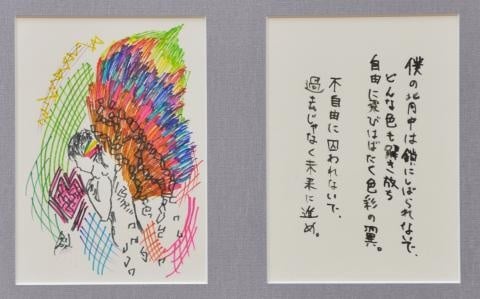 僕の背中は鎖にしばられないで、
どんな色も解き放ち
自由に飛びはばたく色彩の翼。
不自由に囚われないで、
過去じゃなく未来に進め。